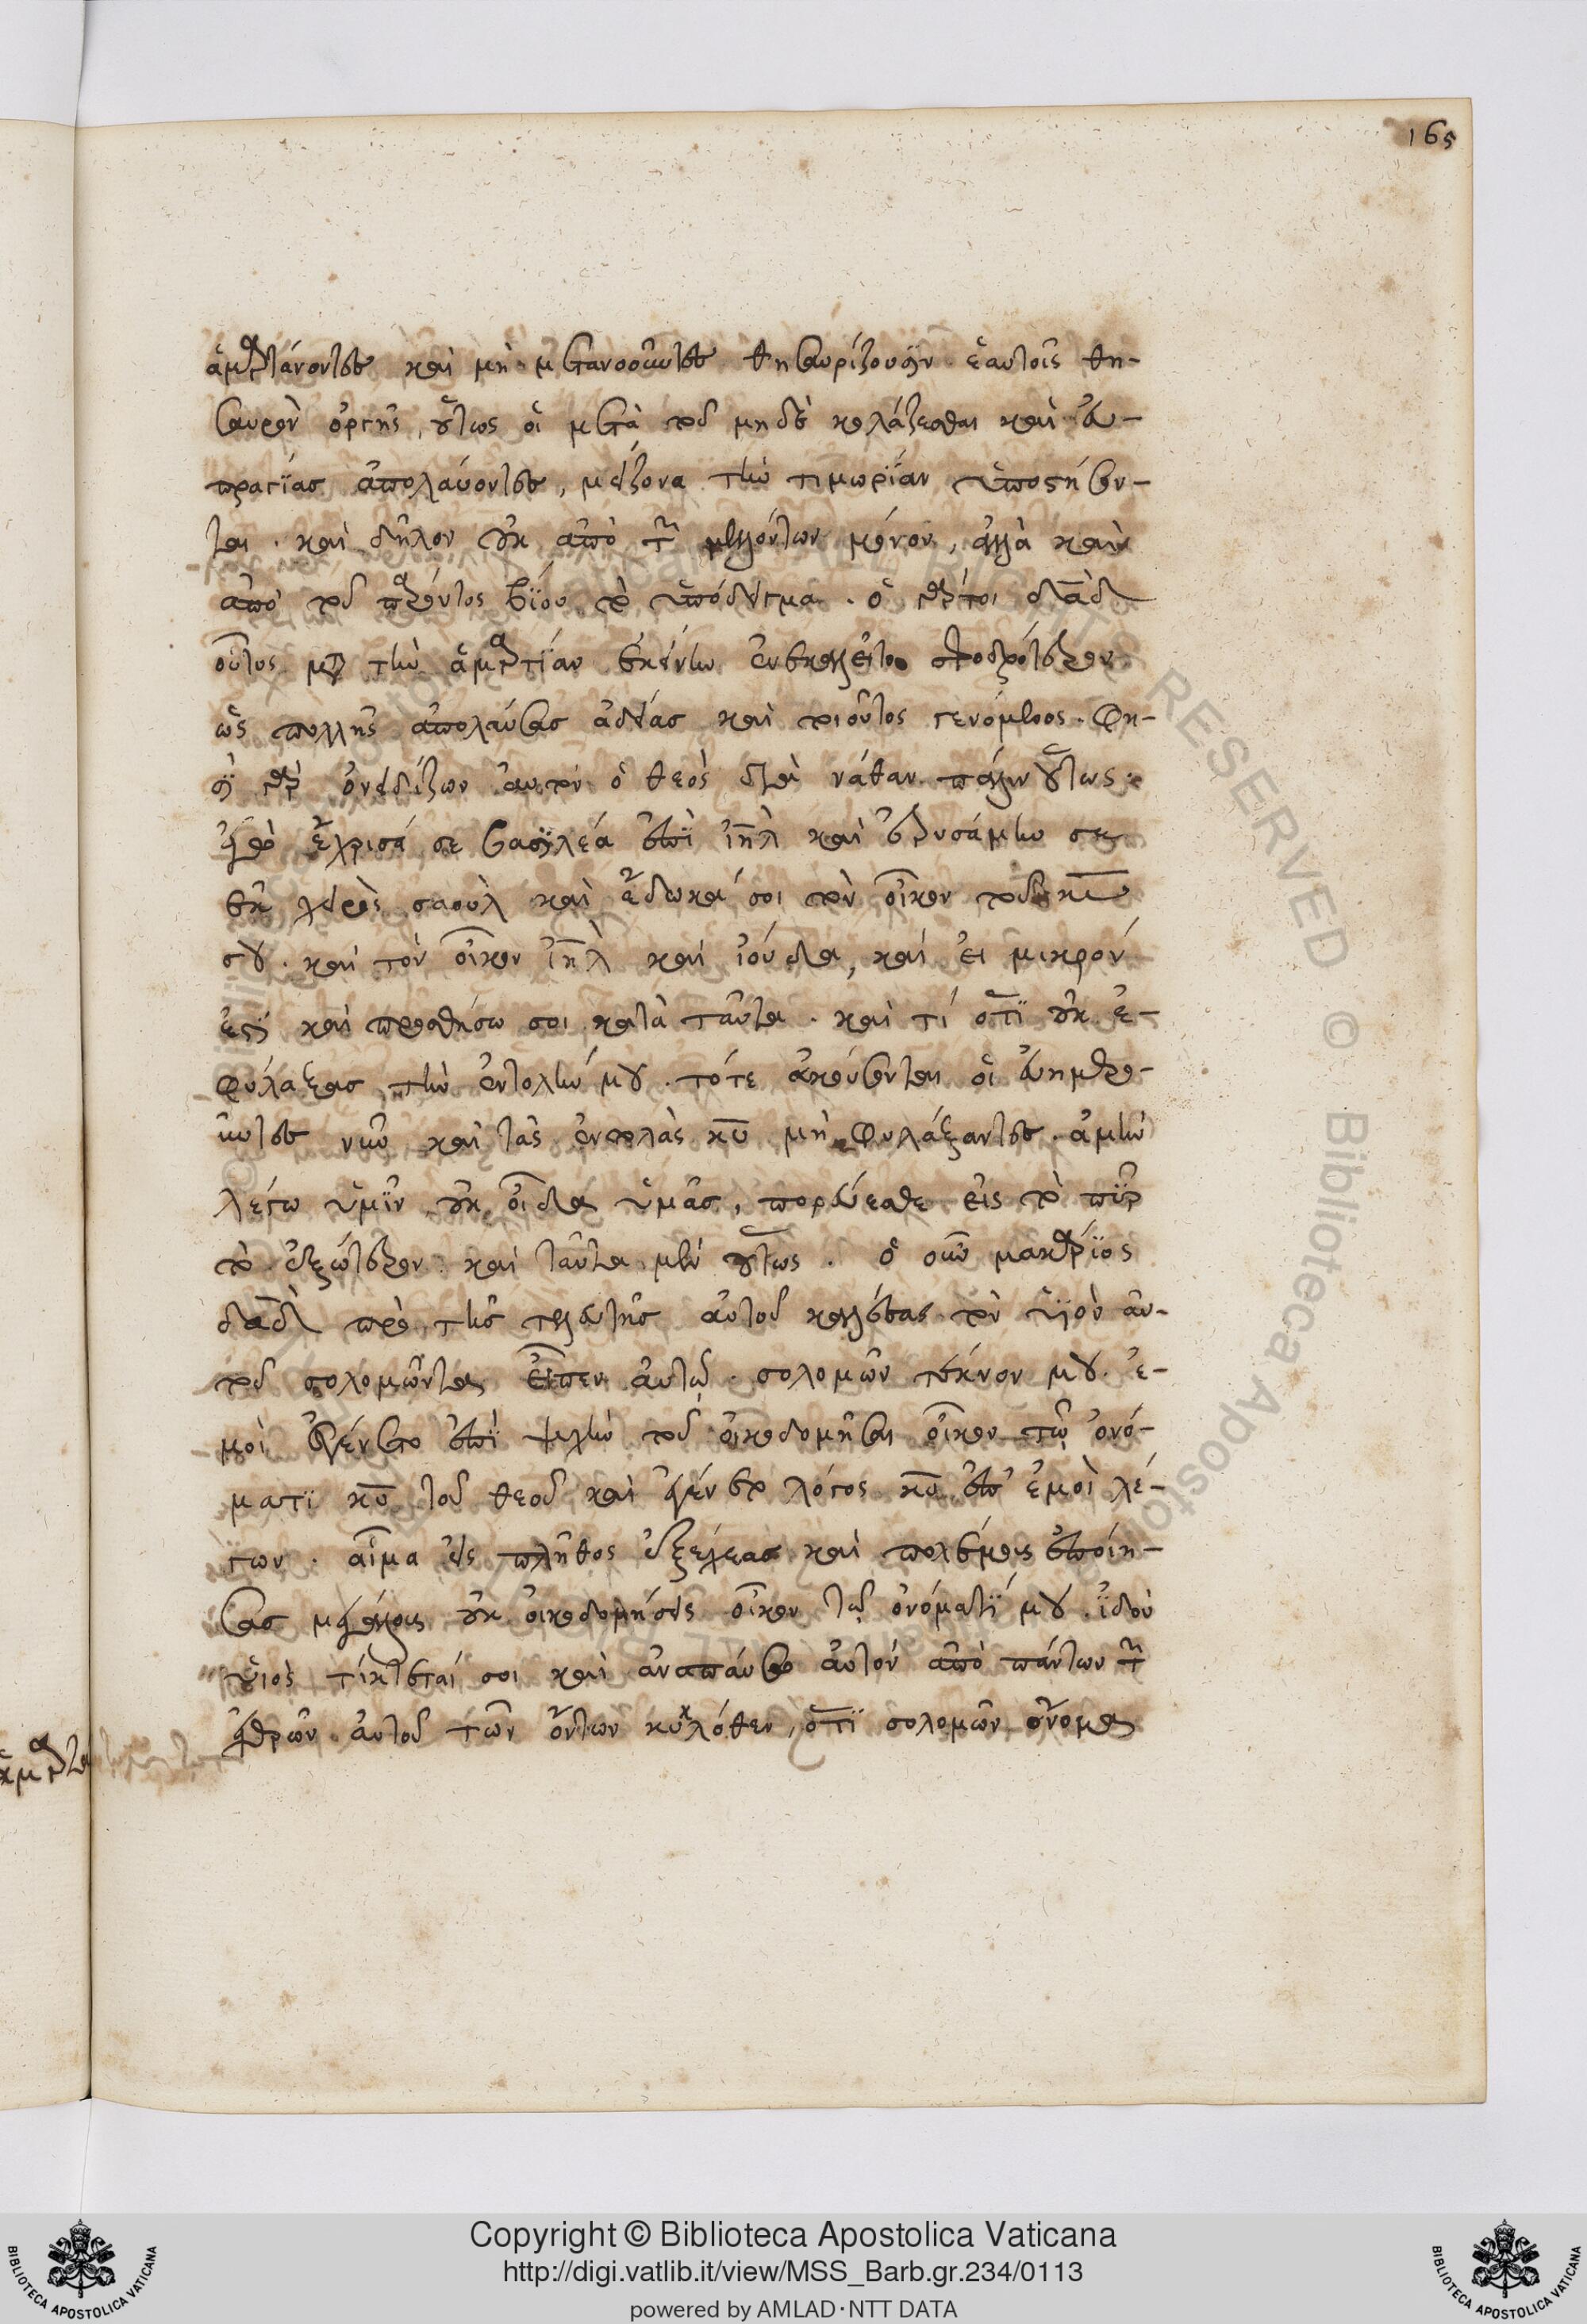 165
ἁμαρτάνοντες καὶ μὴ μετανοοῦντες θησαυρίζουσιν ἑαυτοῖς θη-
σαυρὸν ὀργῆς, οὕτως οἱ μετὰ τοῦ μηδὲ κολάζεσθαι καὶ εὐ-
πραγΐας ἀπολαύοντες, μείζονα τὴν τιμωρΐαν ὑποστήσον-
ται. καὶ δῆλον οὐκ ἀπὸ τῶν μελλόντων μόνον, ἀλλὰ καὶ
ἀπὸ τοῦ παρόντος βΐου τὸ ὑπόδειγμα. ὁ γάρτοι δαδ
οὗτος μετὰ τὴν ἁμαρτΐαν ἐκείνην ἐνεκαλεῖτο σφοδρότερον
ὡς πολλῆς ἀπολαύσας ἀδείας καὶ τοιοῦτος γενόμενος. φη-
σΐ γὰρ ὀνειδίζων αὐτὸν ὁ θεὸς διὰ νάθαν πάλιν οὕτως.
ἐγὼ ἔχρισά σε βασϊλέα ἐπῒ ιηλ καὶ ἐρυσάμην σε
ἐκ χειρὸς σαοὺλ καὶ ἔδωκά σοι τὸν οἶκον τοῦ κυ
σου. καὶ τὸν οἶκον ιηλ καὶ ἰούδα, καὶ εἰ μικρόν
ἐστΐ καὶ προσθήσω σοι κατὰ ταῦτα. καὶ τί ὅτϊ οὐκ ἐ-
φύλαξας τὴν ἐντολήν μου. τότε ἀκούσονται οἱ εὐημερο-
ῦντες νῦν καὶ τὰς ἐντολὰς κυ μὴ φυλάξαντες. ἀμὴν
λέγω ὑμῖν οὐκ οἶδα ὑμᾶς, πορεύεσθε εἰς τὸ πῦρ
τὸ ἐξώτερον. καὶ ταῦτα μὲν οὕτως. ὁ οὖν μακάρϊος
δαδ πρὸ τῆς τελευτῆς αὐτοῦ καλέσας τὸν υἱὸν αὐ-
τοῦ σολομῶντα εἶπεν αὐτῷ. σολομῶν τέκνον μου. ἐ-
μοὶ ἐγένετο ἐπῒ ψυχὴν τοῦ οἰκοδομῆσαι οἶκον τῷ ὀνό-
ματϊ κυ τοῦ θεοῦ καὶ ἐγένετο λόγος κυ ἐπ' ἐμοὶ λέ-
γων. αἷμα εἰς πλῆθος ἐξέχεας καὶ πολέμους ἐποίη-
σας μεγάλους οὐκ οἰκοδομήσεις οἶκον τῷ ὀνόματΐ μου. ἰδοὺ
υἱὸς τίκτεταί σοι καὶ ἀναπαύσω αὐτὸν ἀπὸ πάντων τῶν
ἐχθρῶν αὐτοῦ τῶν ὄντων κυκλόθεν, ὅτϊ σολομῶν ὄνομα
Copyright © Biblioteca Apostolica Vaticana
http://digi.vatlib.it/view/MSS_Barb.gr.234/0113
powered by AMLAD·NTT DATA